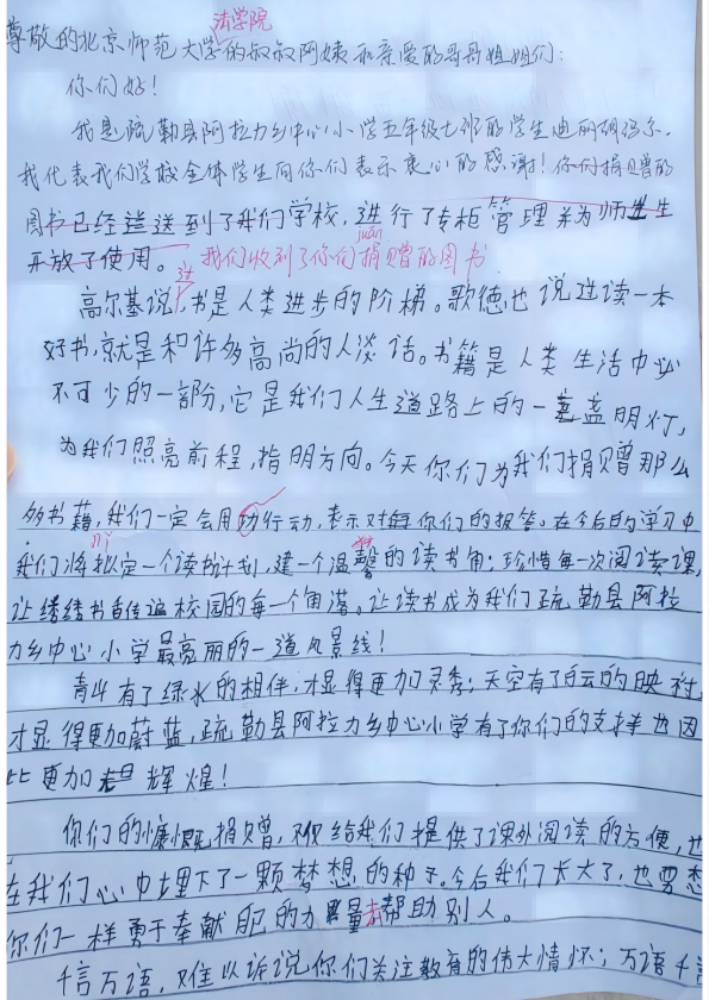 法学院
尊敬的北京师范大学的叔叔阿姨和亲爱的哥哥姐姐们:
你们好!
我是疏勒县阿拉力乡中心小学五年级七班的学生迪丽胡玛尔.
我代表我们学校全体学生向你们表示衷心的感谢!你们捐赠的
图书已经送到了我们学校,进行了专柜管理并为师生
开放了使用。我们收到了你们捐赠的图书
juān
过
高尔基说,书是人类进步的阶梯。歌德也说过读一本
好书,就是和许多高尚的人谈话。书籍是人类生活中必
不可少的一部分,它是我们人生道路上的一盏明灯,
为我们照亮前程,指明方向。今天你们为我们捐赠那么
多书藉,我们一定会用功行动,表示对每你们的报答。在今后的学习中
nǐ
我们将拟定一个读书计划,建一个温馨的读书角;珍惜每一次阅读课,
让缕缕书香传遍校园的每一个角落。让读书成为我们疏勒县阿拉
力乡中心小学最亮丽的一道风景线!
青山有了绿水的相伴,才显得更加灵秀;天空有了白云的映衬,
才显得更加蔚蓝,疏勒县阿拉力乡中心小学有了你们的支持也因
比更加辉煌!
你们的慷慨捐赠,不仅给我们提供了课外阅读的方便,也
在我们心中埋下了一颗梦想的种子。今后我们长大了,也要想
你们一样勇于奉献自己的力量去帮助别人。
千言万语,难以诉说你们关注教育的伟大情怀;万语千言